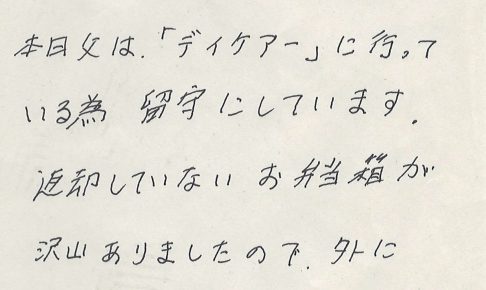 本日父は.「デイケアー」に行って
いる為 留守にしています.
返却していない お弁当箱が
沢山ありましたので. 外に